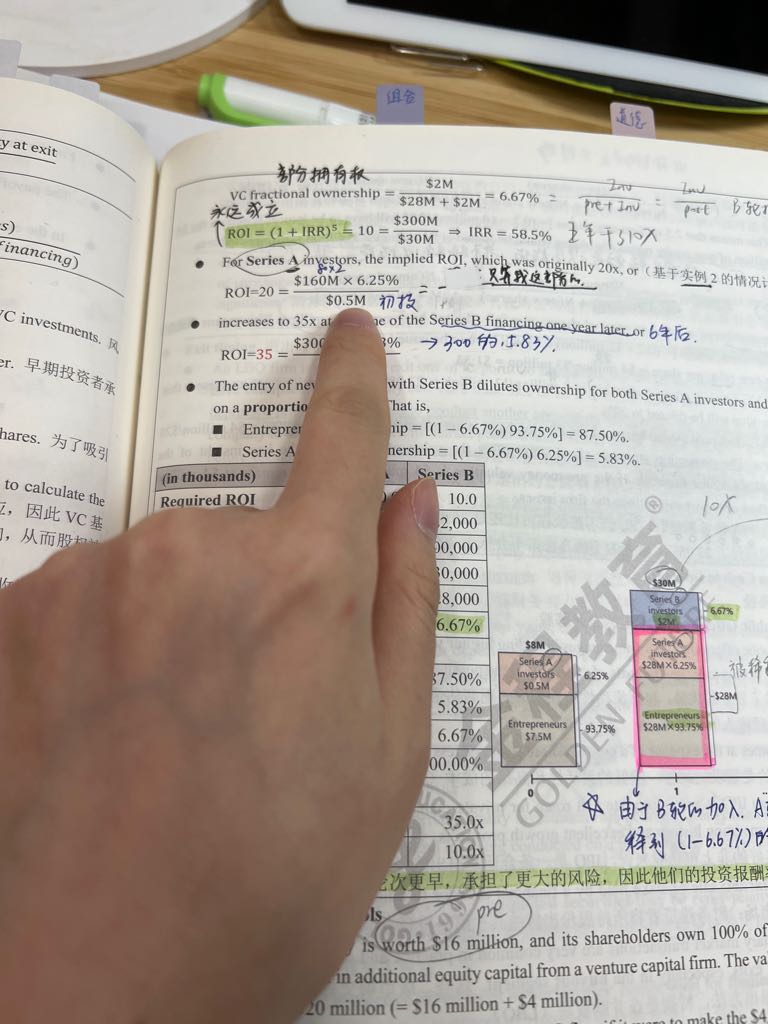 组合
道德
y at exit
s)
financing)
VC investments. 风
er. 早期投资者承
hares. 为了吸引
to calculate the
应，因此 VC 基
部分拥有权
VC fractional ownership = $2M / $28M + $2M = 6.67% = Inv / pre + Inv = Inv / post B轮
永远成立
ROI = (1 + IRR)⁵ = 10 = $300M / $30M ⇒ IRR = 58.5%
● For Series A investors, the implied ROI, which was originally 20x, or (基于实例 2 的情况计
80x2
ROI=20 = $160M × 6.25% / $0.5M
初投
● increases to 35x at of the Series B financing one year later, or 6年后.
ROI=35 = $300 3%
→ 300的 5.83%.
● The entry of new with Series B dilutes ownership for both Series A investors and
on a proportio That is,
■ Entrepre hip = [(1 − 6.67%) 93.75%] = 87.50%.
■ Series A nership = [(1 − 6.67%) 6.25%] = 5.83%.
(in thousands) Series B
Required ROI 10.0
2,000
00,000
30,000
8,000
6.67%
87.50%
5.83%
6.67%
00.00%
35.0x
10.0x
10X
$30M
Series B investors $2M
6.67%
$8M
Series A investors $0.5M
6.25%
Series A investors $28M×6.25%
$28M
Entrepreneurs $7.5M
93.75%
Entrepreneurs $28M×93.75%
0
1
金程教育
®
GOLDEN FUTURE
由于B轮的加入. A
释到 (1-6.67%)的
轮次更早，承担了更大的风险，因此他们的投资报酬率
ls
pre
is worth $16 million, and its shareholders own 100% of
in additional equity capital from a venture capital firm. The va
20 million (= $16 million + $4 million).
to make the $4